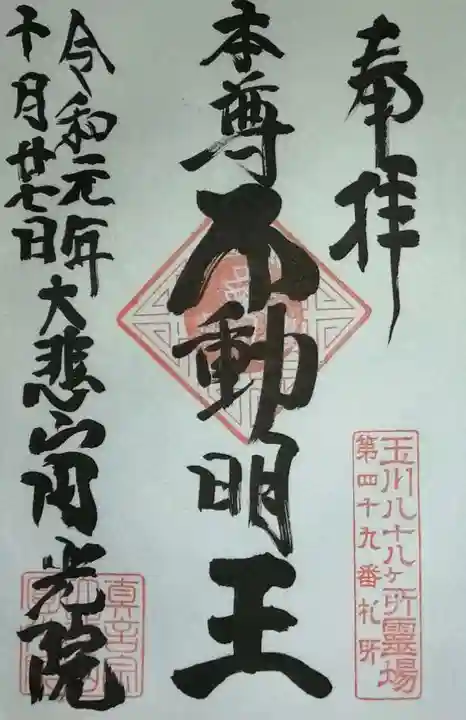 奉拝
玉川八十八ヶ所霊場
第四十九番札所
本尊
不動明王
令和元年
十月廿七日
大悲山円光院
真言宗